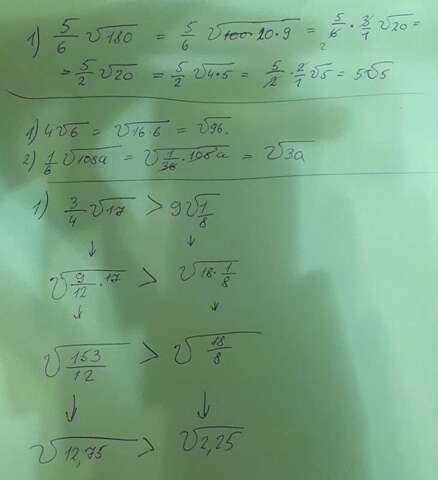 1) 5/6 √180 = 5/6 √20·9 = 5/6 · 3/1 √20 =
= 5/2 √20 = 5/2 √4·5 = 5/2 · 2/1 √5 = 5√5
1) 4√6 = √16·6 = √96.
2) 1/6 √108a = √1/36 · 108a = √3a
1) 3/4 √17 > 9√1/8
√9/12 · 17 > √18 · 1/8
√153/12 > √18/8
√12,75 > √2,25